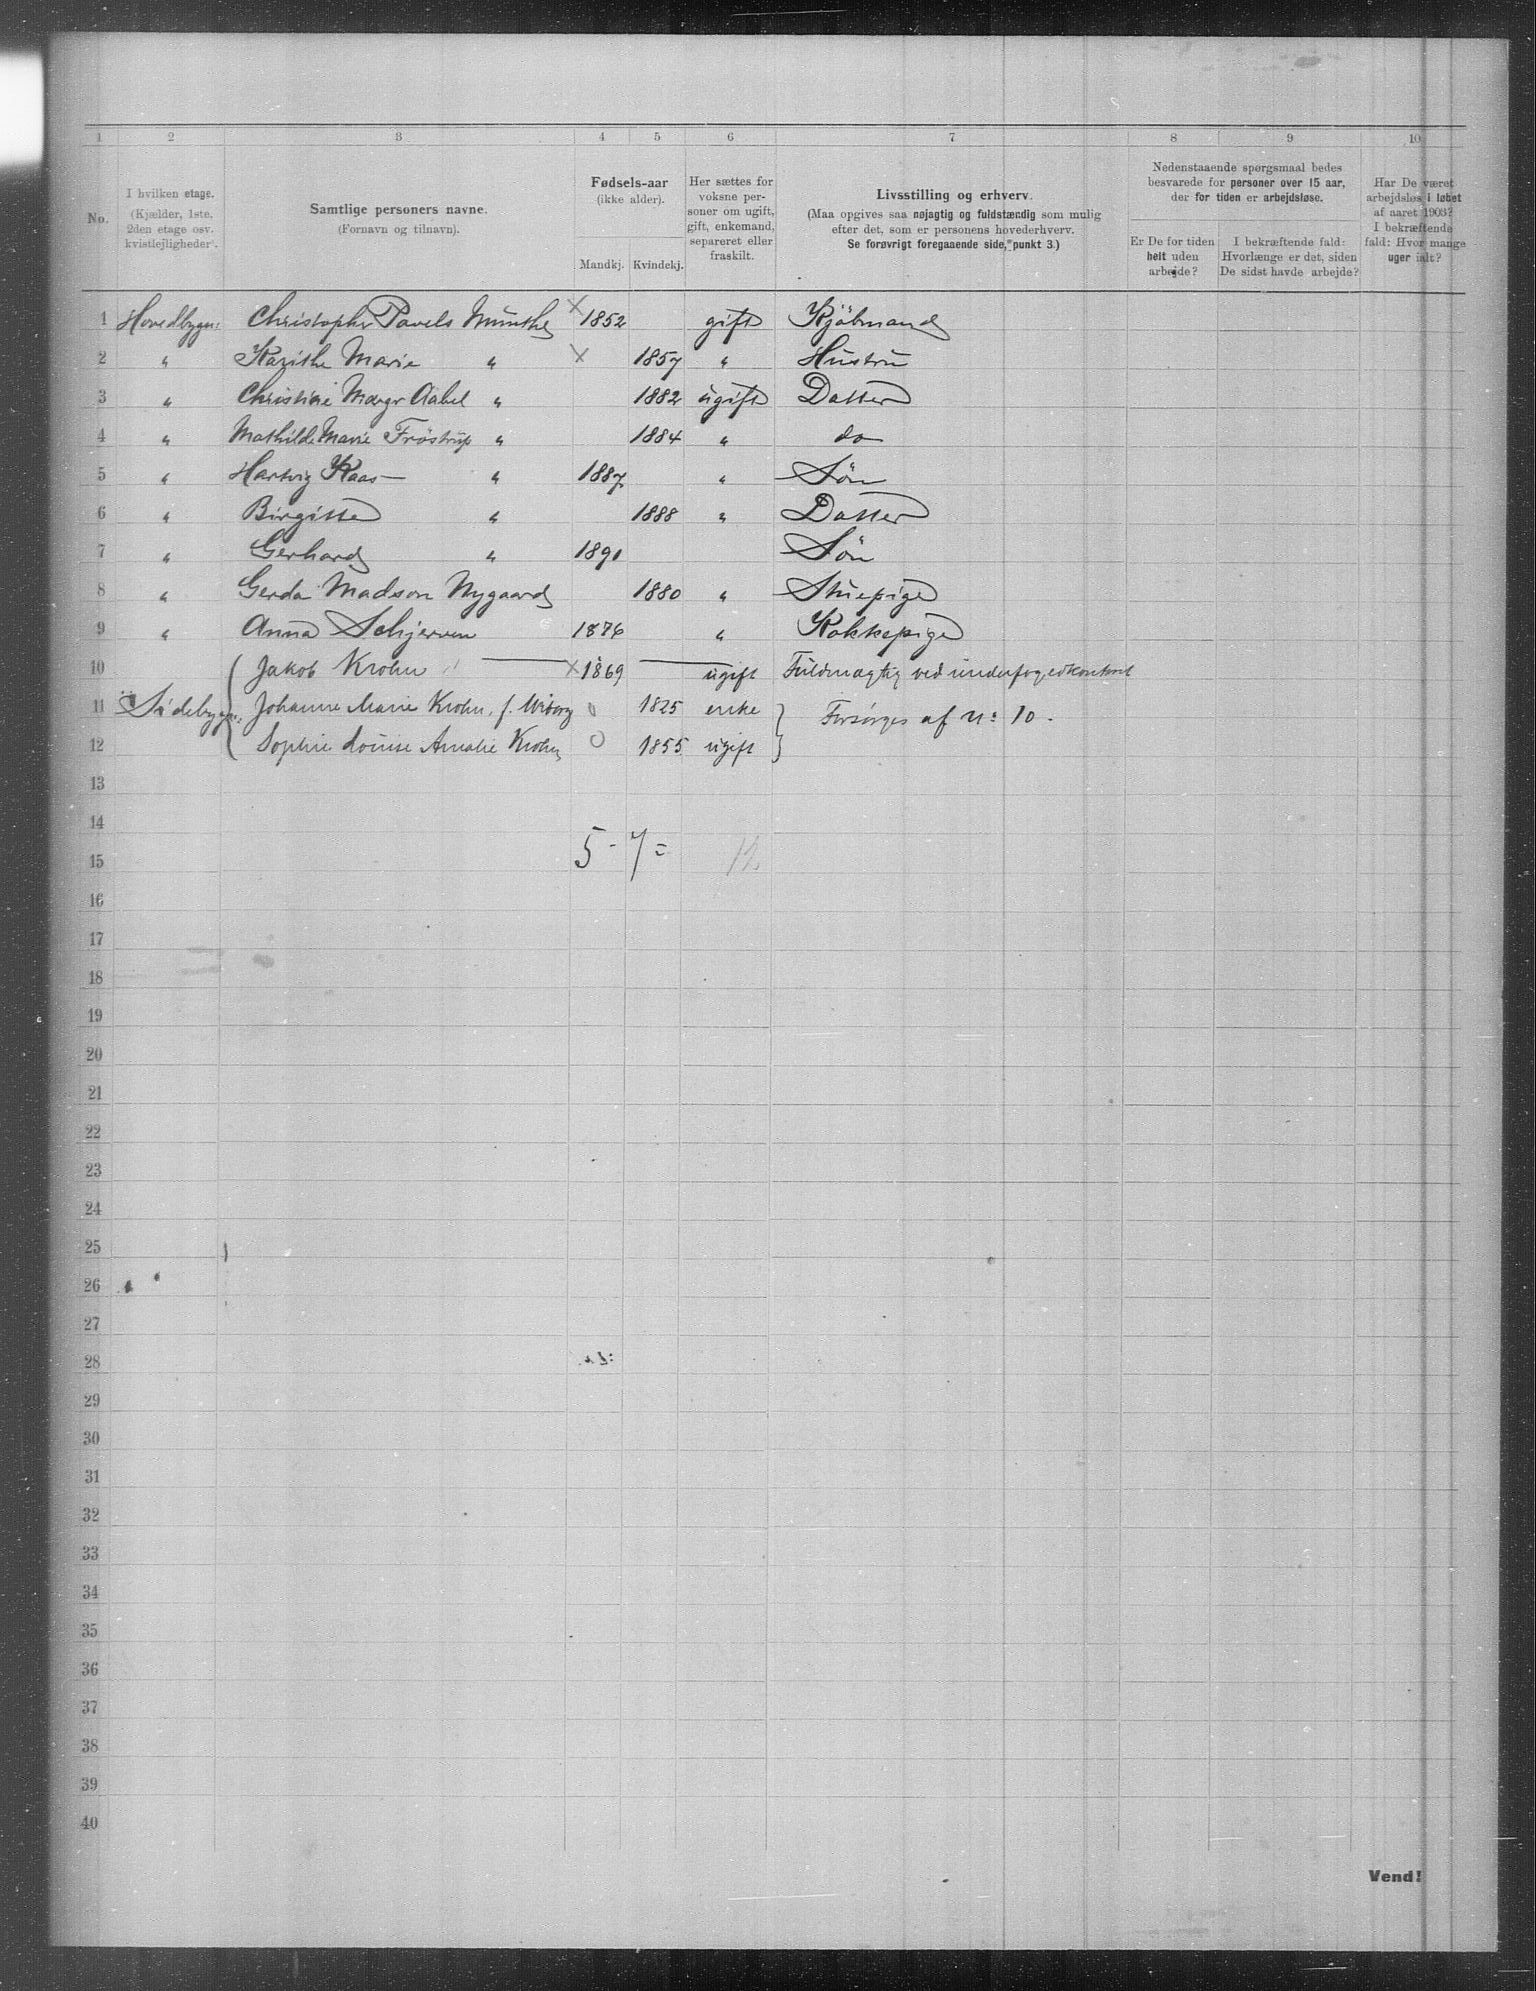 1 2 3 4 5 6 7 8 9 10
No.
I hvilken etage.
(Kjælder, 1ste,
2den etage osv.
kvistlejligheder).
Samtlige personers navne.
(Fornavn og tilnavn).
Fødsels-aar
(ikke alder).
Mandkj. Kvindekj.
Her sættes for
voksne per-
soner om ugift,
gift, enkemand,
separeret eller
fraskilt.
Livsstilling og erhverv.
(Maa opgives saa nøjagtig og fuldstændig som mulig
efter det, som er personens hovederhverv.
Se forøvrigt foregaaende side, punkt 3.)
Nedenstaaende spørgsmaal bedes
besvarede for personer over 15 aar,
der for tiden er arbejdsløse.
Er De for tiden
helt uden
arbejde?
I bekræftende fald:
Hvorlænge er det, siden
De sidst havde arbejde?
Har De været
arbejdsløs i løbet
af aaret 1903?
I bekræftende
fald: Hvor mange
uger ialt?
1 Hovedbygn: Christopher Pavels Munthe × 1852 gift Kjöbmand
2 " Karithe Marie " × 1857 " Hustru
3 " Christine Margr Aabel " 1882 ugift Datter
4 " Mathilde Marie Fröstrup " 1884 " do
5 " Hartvig Kaas " 1887 " Sön
6 " Birgitte " 1888 " Datter
7 " Gerhard " 1890 Sön
8 " Gerda Madson Nygaard 1880 " Stuepige
9 " Anna Schjerven 1876 " Kokkepige
10 Jakob Krohn × 1869 ugift Fuldmægtig ved underfogedkontoret
11 Sidebygn: Johanne Marie Krohn, f. Wiborg 0 1825 enke Forsörges af No 10.
12 Sophie Louise Amalie Krohn 0 1855 ugift
13
14
5 - 7 = 12
15
16
17
18
19
20
21
22
23
24
25
26
27
28
29
30
31
32
33
34
35
36
37
38
39
40
Vend!